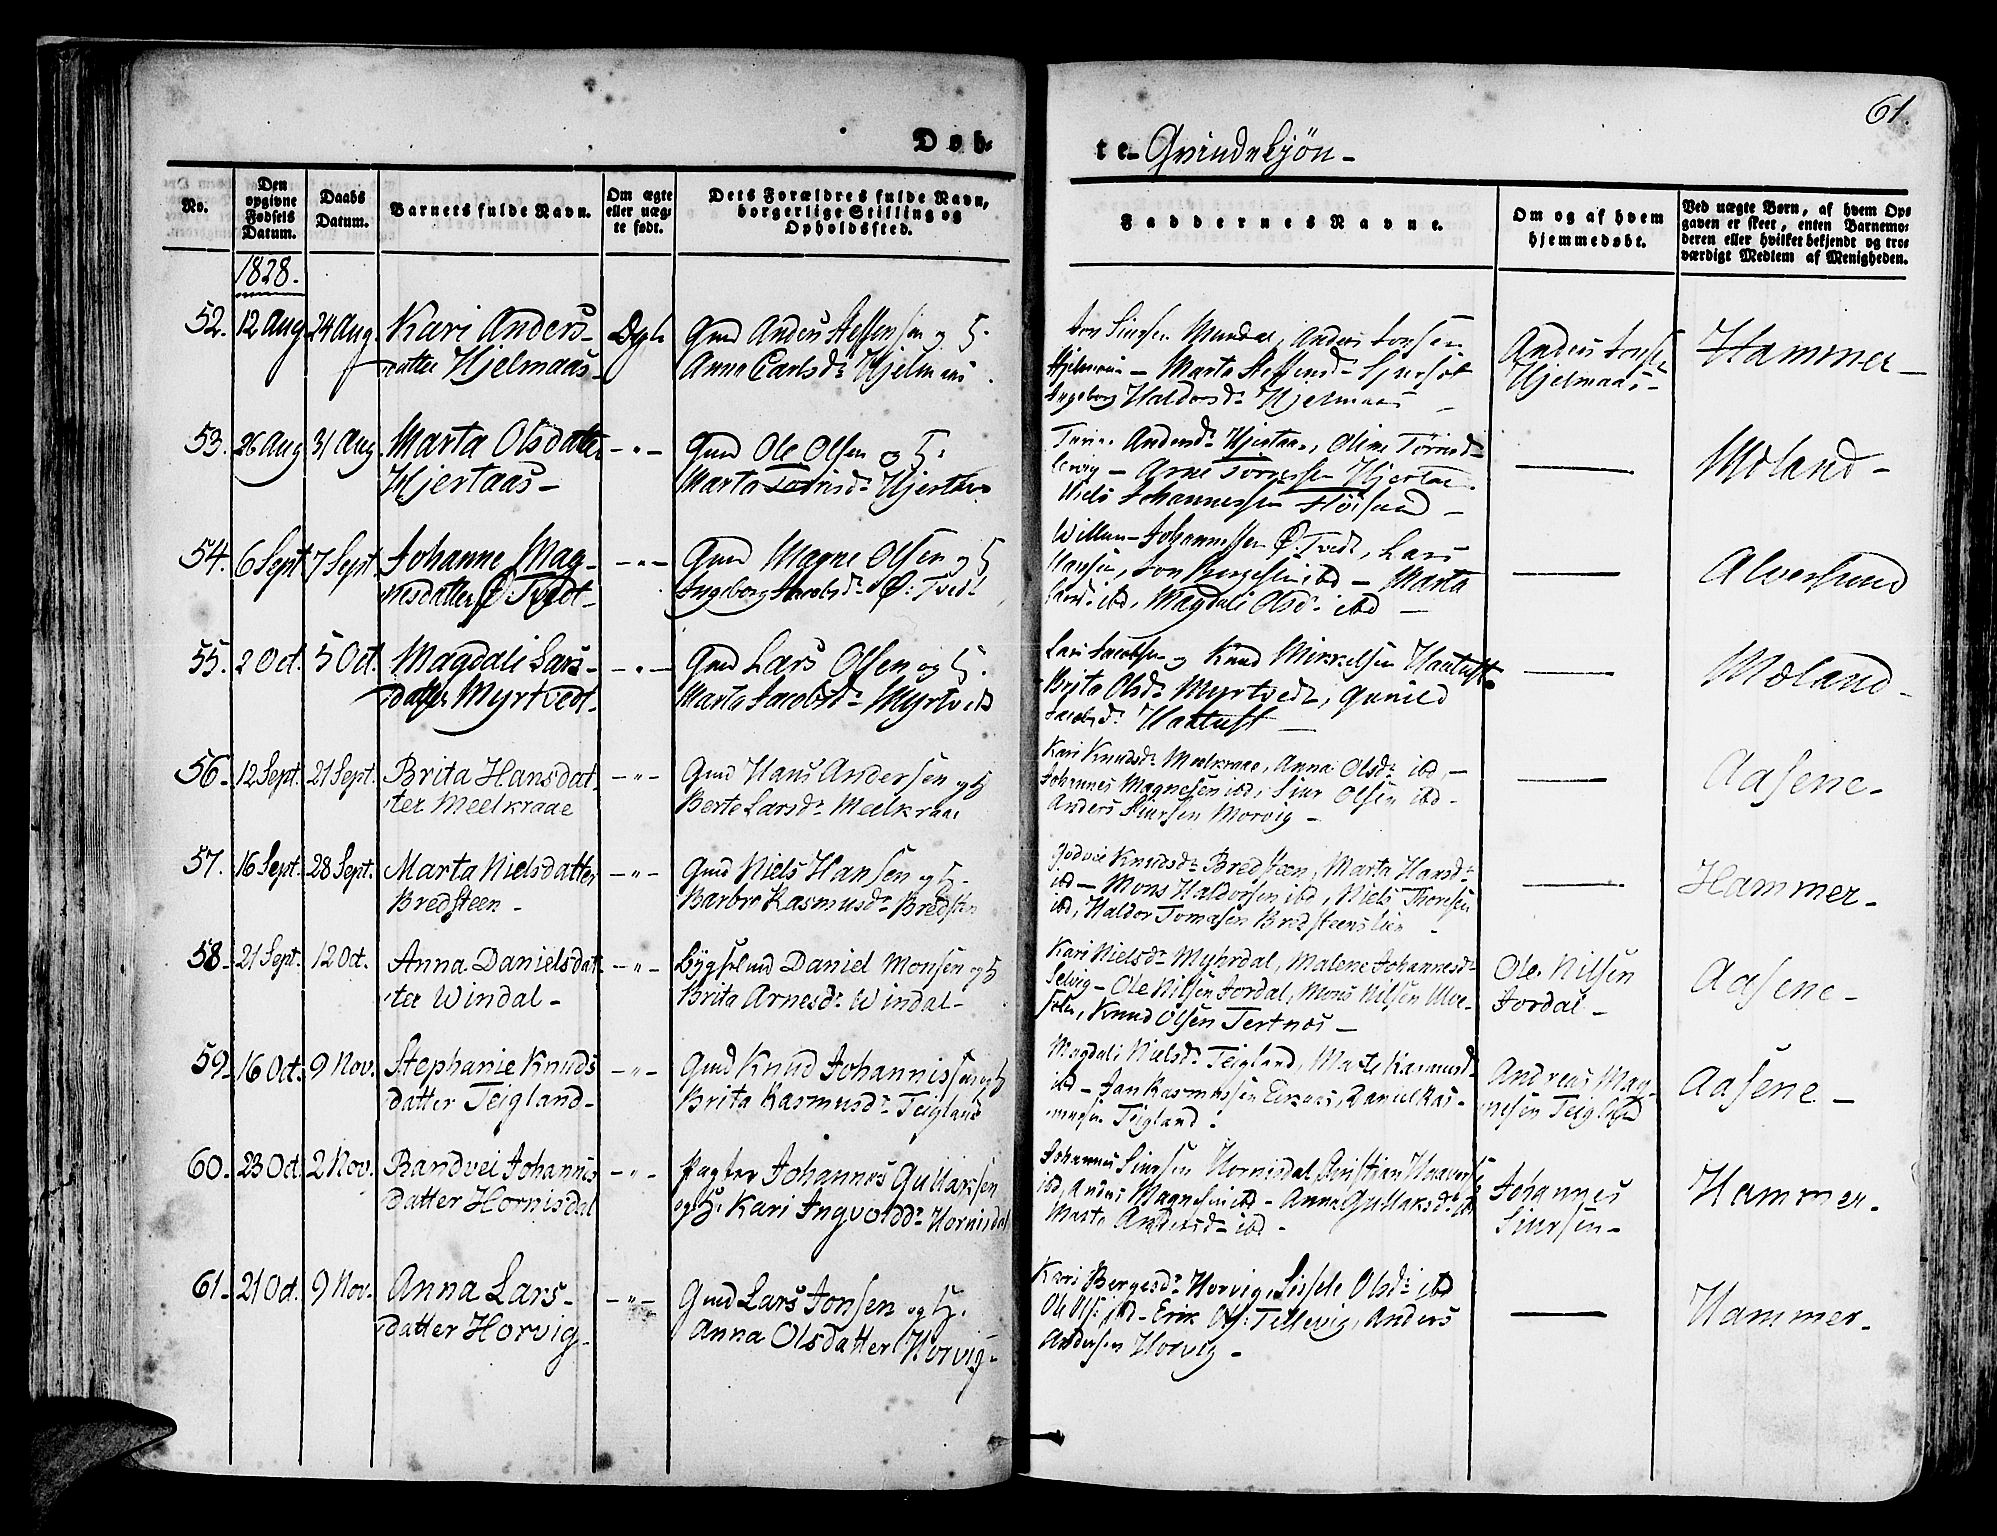 61.
Døb-
te- Qvindekjøn-
No.
Den
opgivne
Fødsels
Datum.
Daabs
Datum.
Barnets fulde Navn.
Om ægte
eller uæg-
te født.
Dets Forældres fulde Navn,
borgerlige Stilling og
Opholdssted.
Faddernes Navne.
Om og af hvem
hjemmedøbt.
Ved uægte Børn, af hvem Op-
gaven er skeet, enten Barnemo-
deren eller hvilket bekjendt og tro-
værdigt Medlem af Menigheden.
1828.
52. 12 Aug 24 Aug Kari Anders-
datter Hjelmaas-
Gmd Anders Steffensen og H.
Anna Carlsd. Hjelmaas
Jon Siursen Mundal, Anders Jonsen
Hjelmaas - Marta Steffensd.
Ingeborg Haldorsd. Hjelmaas -
Anders Jonse
Hjelmaas-
Hammer-
53. 26 Aug 31 Aug Marta Olsdatter
Hjertaas-
-"-
Gmd Ole Olsen og H.
Marta Hjertaas
Andersd. Hjertaas,
Arne Hjertaas.
Niels Johannessen -
Moland-
54. 6 Sept 7 Sept. Johanne Mag-
nesdatter Ø: Tvedt-
-"-
Gmd Magne Olsen og H
Ingeborg Jacobsd. Ø: Tvedt
Willum Johannessen Ø: Tvedt, Lars
Hansen, Jon Borgesen ibd - Marta
ibd, Magdali Olsd. ibd -
Alversund
55. 2 Oct. 5 Oct. Magdali Lars-
datter Myrtvedt.
-"-
Gmd Lars Olsen og H.
Marta Jacobsd. Myrtvedt
Lars Jacobsen og Knud Mikkelsen Haatuft-
Brita Olsd. Myrtvedt, Gunild
Jacobsd. Haatuft -
Moland-
56- 12 Sept. 21 Sept. Brita Hansdat-
ter Meelkraae
-"-
Gmd Hans Andersen og H
Berte Larsd. Meelkraae
Kari Knudsd. Meelkraae, Anna Olsd. ibd, -
Johannes Magnesen ibd, Siur Olsen ibd-
Anders Siursen Morvig -
Aasene-
57. 16 Sept. 28 Sept. Marta Nielsdatter
Bredsteen -
-"-
Gmd Niels Hansen og H-
Barbro Rasmusd. Bredsten
Knudsd. Bredsteen, Marta Hansd.
ibd - Mons Haldorsen ibd, Niels Thoresen
ibd, Haldor Tomasen Bredsteenslien -
Hammer-
58- 21 Sept. 12 Oct. Anna Danielsdat-
ter Windal-
-"-
Daniel Monsen og H
Brita Arnesd. Windal-
Kari Nielsd. Myhrdal, Malene Johannesd.
Selvig - Ole Nilsen Jordal, Mons Nilsen
Knud Olsen Tertnæs -
Ole Nilsen
Jordal-
Aasene-
59- 16 Oct. 9 Nov. Stephanie Knuds
datter Teigland-
-"-
Gmd Knud Johannissen og H
Brita Rasmusd. Teigland
Magdali Nielsd. Teigland, Marte Rasmusd.
ibd - Jan Rasmussen Eiknes, Daniel Ras-
musen Teigland.
Andreas Mag-
nesen Teigland
Aasene -
60- 23 Oct. 2 Nov. Randvei Johannes
datter Hornisdal
-"-
Pagter Johannes Gullaksen
og H: Kari Ingvoldd. Hornisdal
Johannes Siursen Hornisdal, Christian
ibd, Anders Magnesen ibd - Anna Gullaksd. ibd
Marta Andersd. ibd -
Johannes
Siursen-
Hammer.
61- 21 Oct. 9 Nov- Anna Lars-
datter Horvig-
-"-
Gmd Lars Jonsen og H.
Anna Olsdatter Horvig-
Kari Borgesd. Horvig, Sissele Olsd. ibd
Ole Ols: ibd - Erik Ols: Tellevig, Anders
Andersen Horvig -
Hammer-